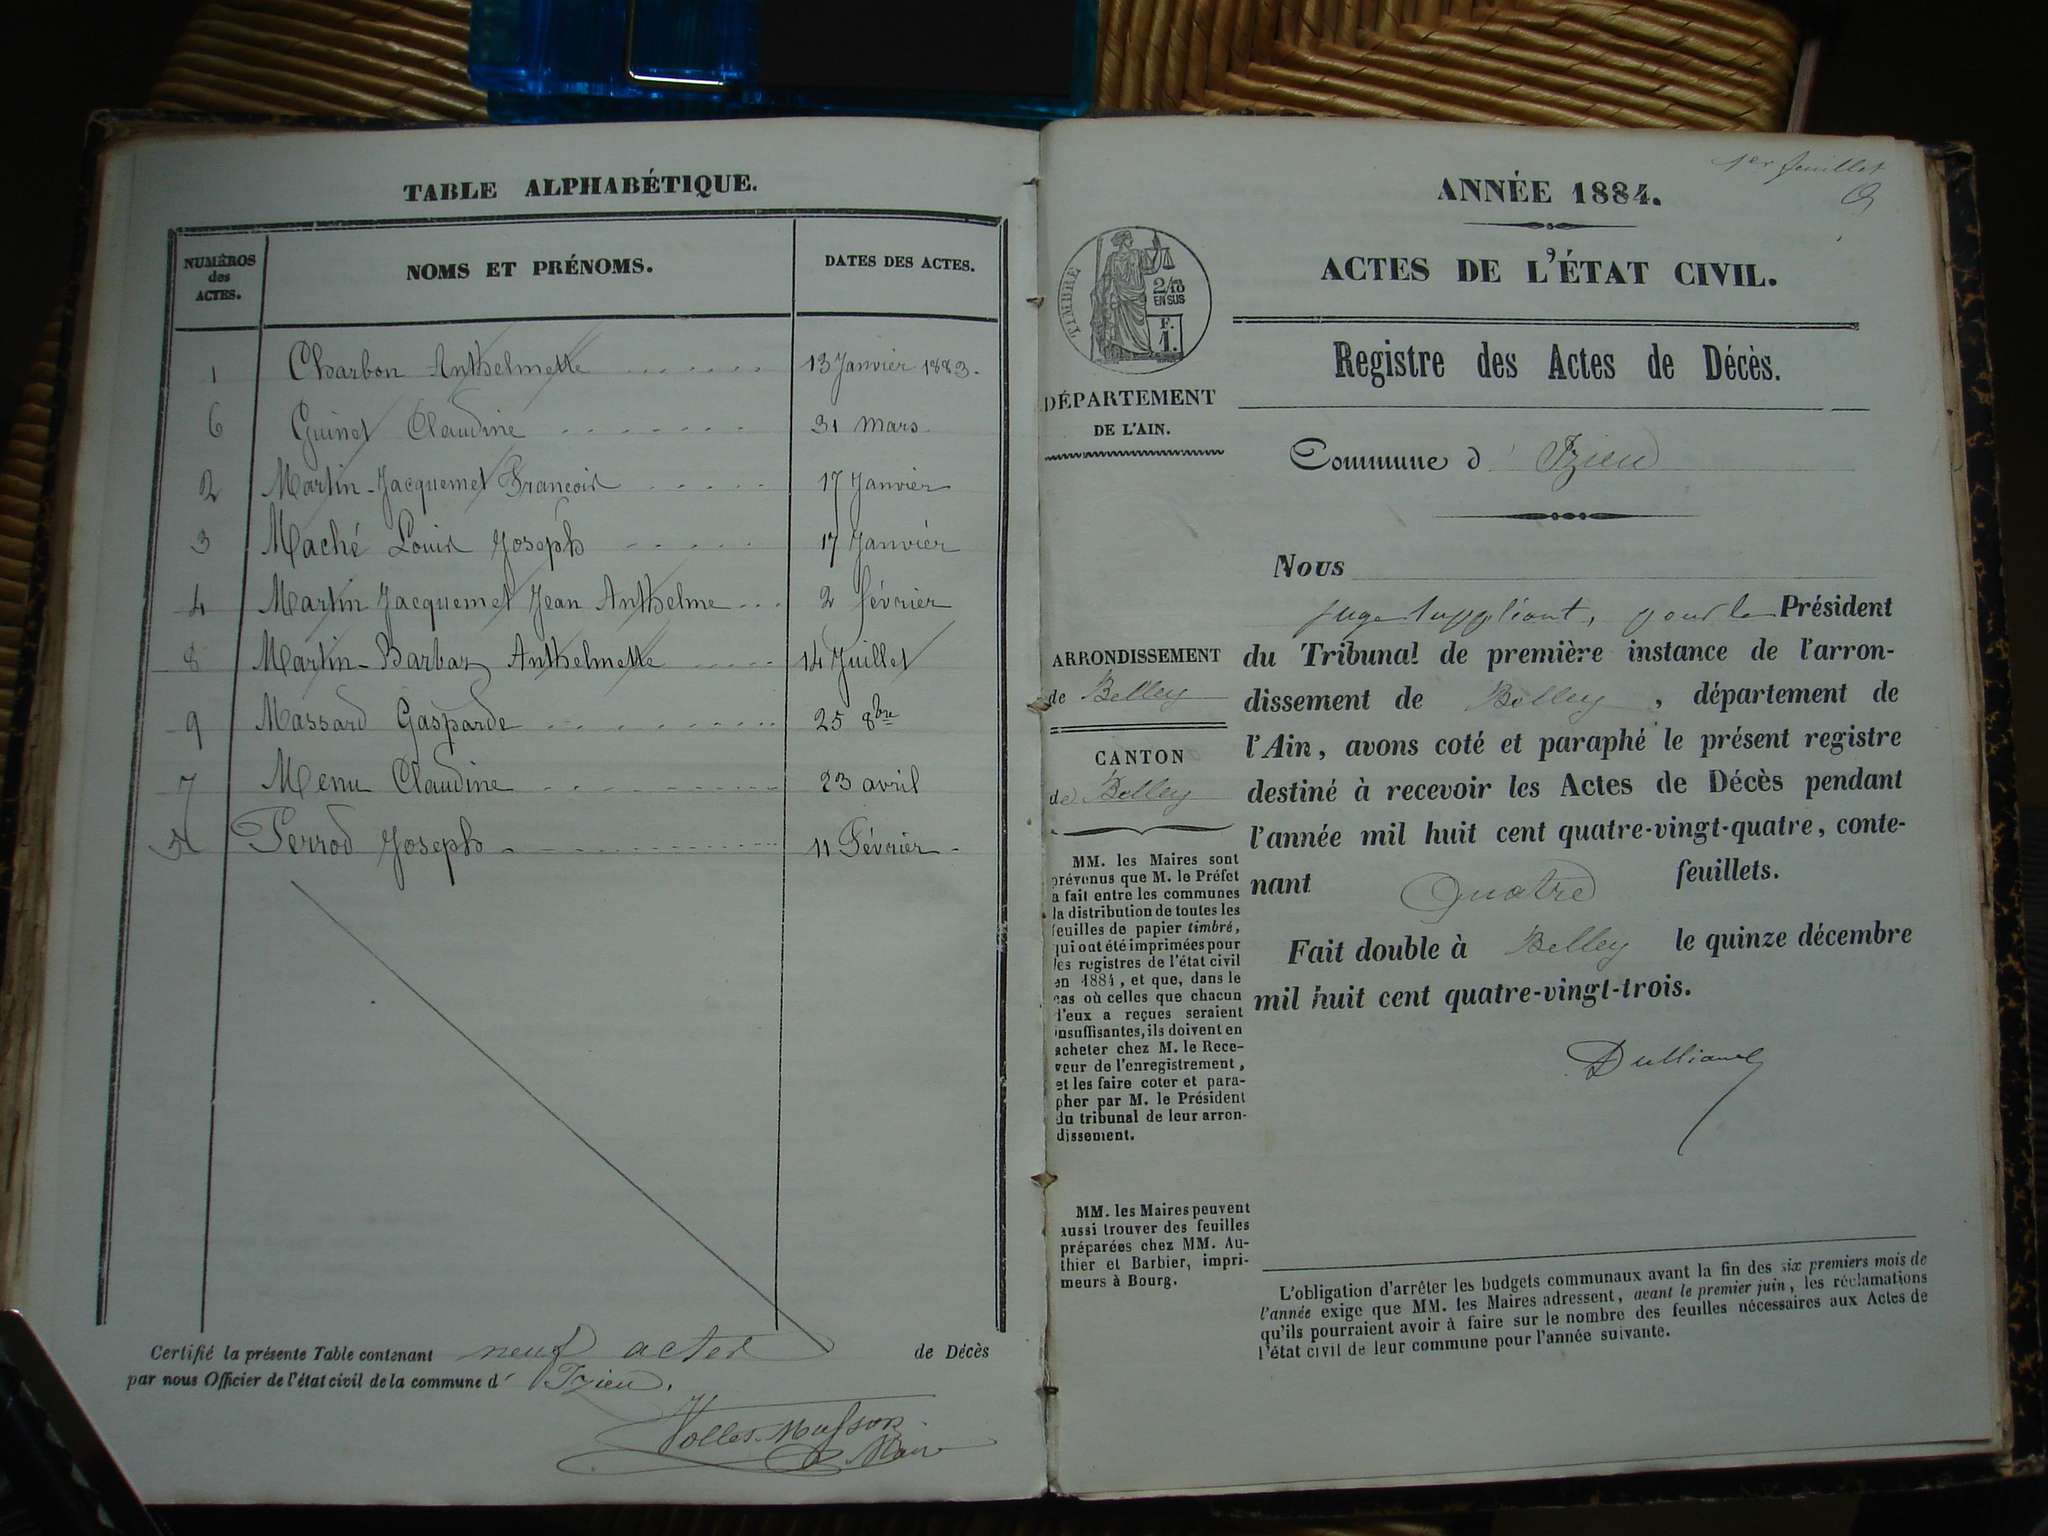 TABLE ALPHABÉTIQUE.
NUMÉROS des ACTES. NOMS ET PRÉNOMS. DATES DES ACTES.
1 Charbon Anthelmette 13 Janvier 1883.
6 Guinet Claudine 31 mars
2 Martin-Jacquemet François 17 Janvier
3 Maché Louis Joseph 17 Janvier
4 Martin Jacquemet Jean Anthelme 2 février
8 Martin-Barbaz Anthelmette 14 Juillet
9 Massard Gasparde 25 8bre
7 Menu Claudine 23 avril
5 Perrod Joseph 11 Février
Certifié la présente Table contenant neuf actes de Décès
par nous Officier de l'état civil de la commune d' Izieu.
Maire
1er feuillet
ANNÉE 1884.
ACTES DE L'ÉTAT CIVIL.
TIMBRE
2/10
EN SUS
F.
1.
Registre des Actes de Décès.
DÉPARTEMENT
DE L'AIN.
Commune d' Izieu
Nous
juge suppléant, pour le Président
du Tribunal de première instance de l'arron-
dissement de Belley, département de
l'Ain, avons coté et paraphé le présent registre
destiné à recevoir les Actes de Décès pendant
l'année mil huit cent quatre-vingt-quatre, conte-
nant Quatre feuillets.
Fait double à Belley le quinze décembre
mil huit cent quatre-vingt-trois.
ARRONDISSEMENT
de Belley
CANTON
de Belley
MM. les Maires sont
prévenus que M. le Préfet
a fait entre les communes
la distribution de toutes les
feuilles de papier timbré,
qui ont été imprimées pour
les registres de l'état civil
en 1884, et que, dans le
cas où celles que chacun
d'eux a reçues seraient
insuffisantes, ils doivent en
acheter chez M. le Rece-
veur de l'enregistrement,
et les faire coter et para-
pher par M. le Président
du tribunal de leur arron-
dissement.
MM. les Maires peuvent
aussi trouver des feuilles
préparées chez MM. Au-
thier et Barbier, impri-
meurs à Bourg.
L'obligation d'arrêter les budgets communaux avant la fin des six premiers mois de
l'année exige que MM. les Maires adressent, avant le premier juin, les réclamations
qu'ils pourraient avoir à faire sur le nombre des feuilles nécessaires aux Actes de
l'état civil de leur commune pour l'année suivante.